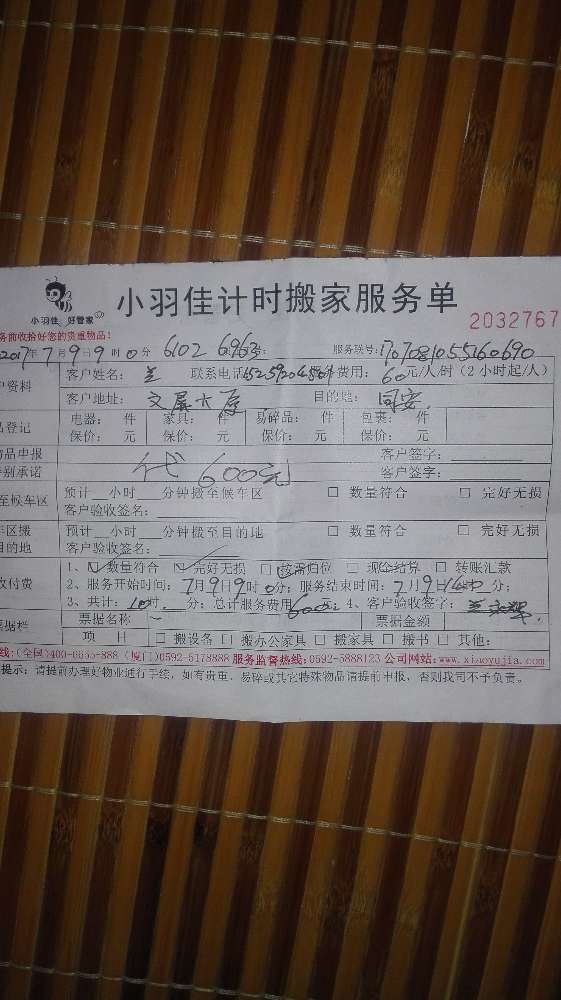 小羽佳 好管家
小羽佳计时搬家服务单
务前收拾好您的贵重物品！
2032767
2017年7月9日9时0分 6102 6963 服务联号：1707081055160690
户资料 客户姓名：兰 联系电话 费用：60元/人/时(2小时起/人)
客户地址：文屏大厦 目的地：同安
品登记 电器： 件 家具： 件 易碎品： 件 包裹： 件
保价： 元 保价： 元 保价： 元 保价： 元
物品申报 客户签字：
特别承诺 代600元 客户签字：
至候车区 预计__小时__分钟搬至候车区 □ 数量符合 □ 完好无损
客户验收签名：
车区搬 预计__小时__分钟搬至目的地 □ 数量符合 □ 完好无损
目的地 客户验收签名：
1、☑数量符合 ☑完好无损 □按需归位 □现金结算 □转账汇款
收付费 2、服务开始时间：7月9日9时0分；服务结束时间：7月9日 分；
3、共计：10时__分；总计服务费用600元 4、客户验收签字：兰
票据栏 票据名称 票据金额
项 目 □ 搬设备 □ 搬办公家具 □ 搬家具 □ 搬书 □ 其他：
线：(全国)400-6655-888 (厦门)0592-5178888 服务监督热线：0592-5888123 公司网站：www.xiaoyujia.com
提示：请提前办理好物业进行手续，如有贵重、易碎或其它特殊物品请提前申报，否则我司不予负责。